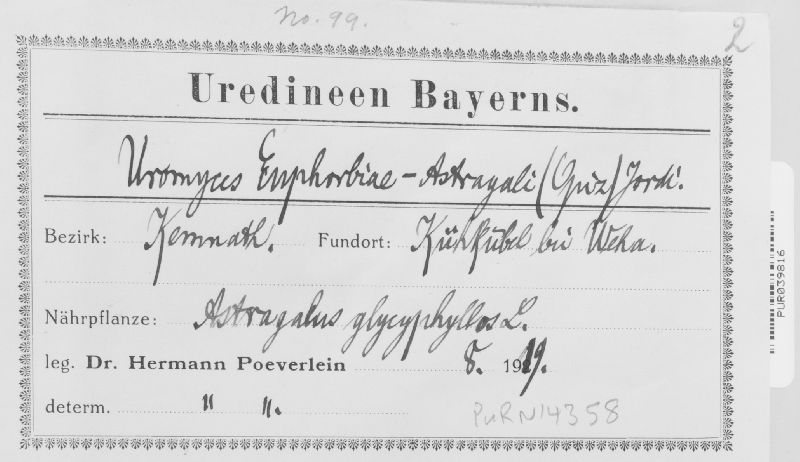 No. 99.
2
Uredineen Bayerns.
Uromyces Euphorbiae - Astragali (Opiz) Jordi.
Bezirk: Kemnath. Fundort: Kühkübel bei Weha.
Nährpflanze: Astragalus glycyphyllos L.
leg. Dr. Hermann Poeverlein 8. 1919.
determ. " ".
PuRN14358
PUR039816